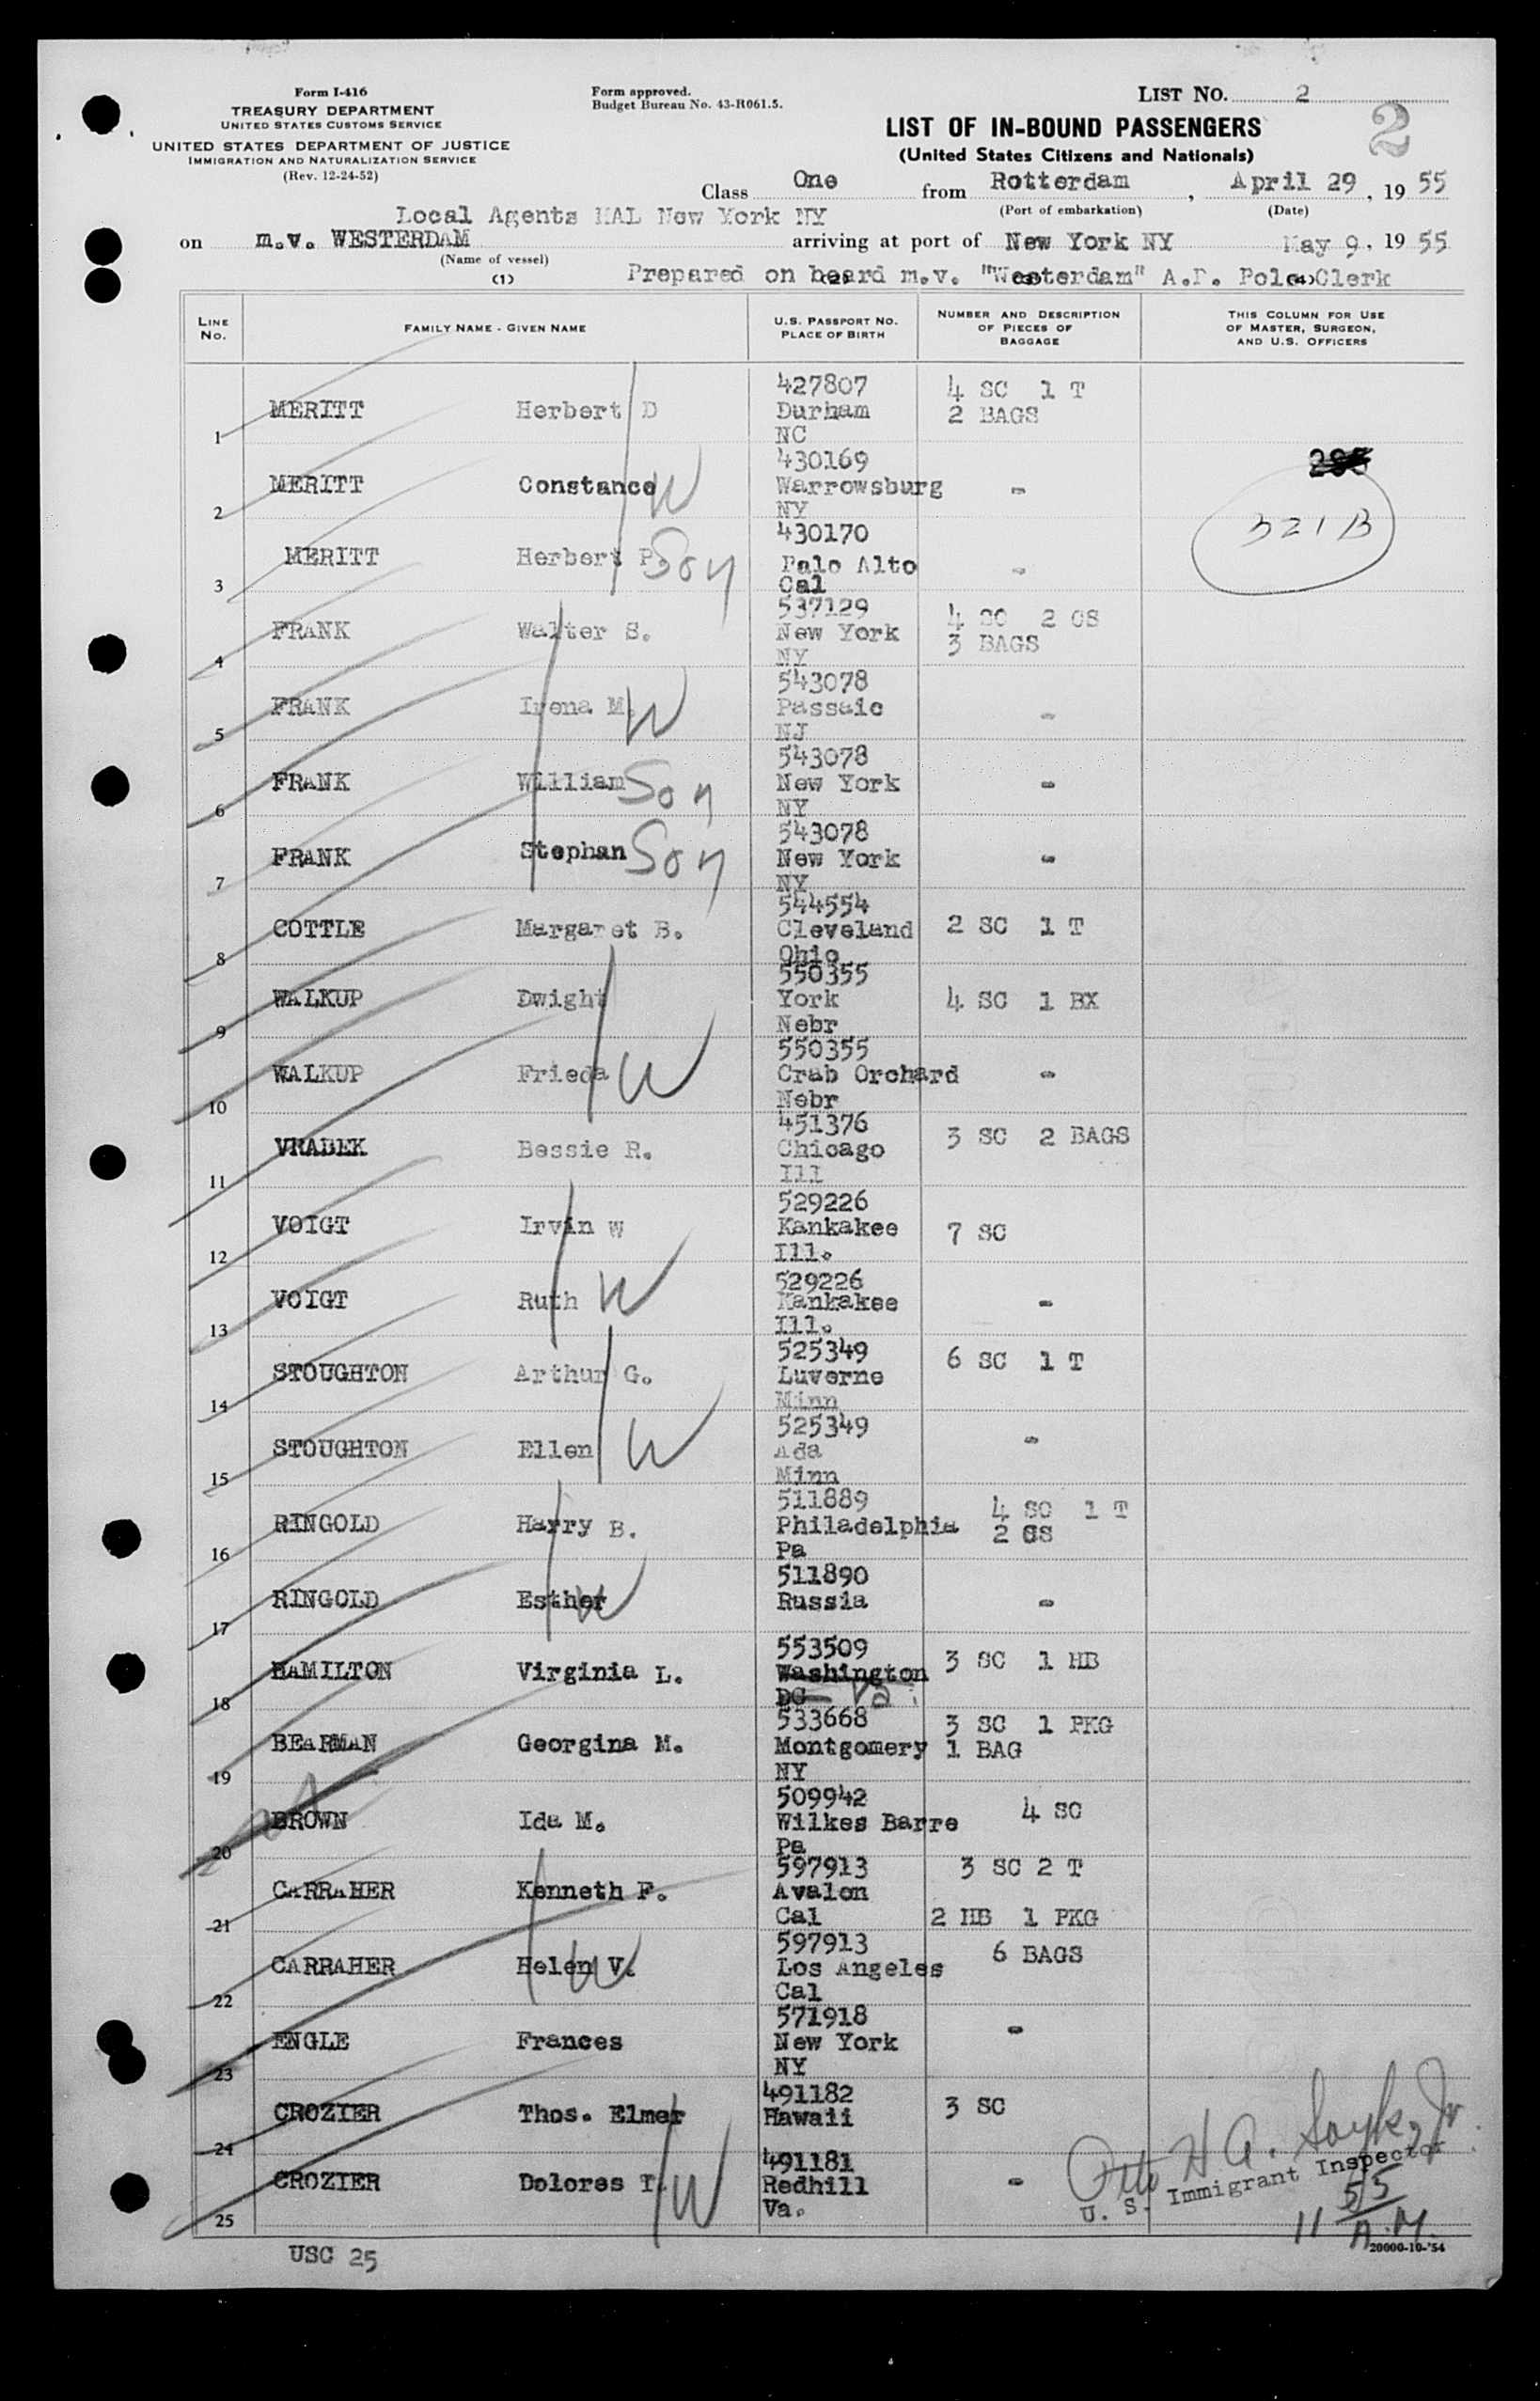 Form I-416
TREASURY DEPARTMENT
UNITED STATES CUSTOMS SERVICE
UNITED STATES DEPARTMENT OF JUSTICE
IMMIGRATION AND NATURALIZATION SERVICE
(Rev. 12-24-52)
Form approved.
Budget Bureau No. 43-R061.5.
LIST NO. 2
2
LIST OF IN-BOUND PASSENGERS
(United States Citizens and Nationals)
Class One from Rotterdam, April 29, 19 55
(Port of embarkation) (Date)
Local Agents HAL New York NY
on m.v. WESTERDAM arriving at port of New York NY May 9, 19 55
(Name of vessel)
Prepared on board m.v. "Westerdam" A.D. Pole Clerk
(1) (2) (3) (4)
LINE NO. FAMILY NAME - GIVEN NAME U.S. PASSPORT NO. PLACE OF BIRTH NUMBER AND DESCRIPTION OF PIECES OF BAGGAGE THIS COLUMN FOR USE OF MASTER, SURGEON, AND U.S. OFFICERS
1 MERITT Herbert D 427807 Durham NC 4 SC 1 T 2 BAGS
2 MERITT Constance W 430169 Warrowsburg NY -
321B
3 MERITT Herbert P Son 430170 Palo Alto Cal -
4 FRANK Walter S. 537129 New York NY 4 SC 2 CS 3 BAGS
5 FRANK Irena M. W 543078 Passaic NJ -
6 FRANK William Son 543078 New York NY -
7 FRANK Stephan Son 543078 New York NY -
8 COTTLE Margaret B. 544554 Cleveland Ohio 2 SC 1 T
9 WALKUP Dwight 550355 York Nebr 4 SC 1 BX
10 WALKUP Frieda W 550355 Crab Orchard Nebr -
11 VRABEK Bessie R. 451376 Chicago Ill 3 SC 2 BAGS
12 VOIGT Irvin W 529226 Kankakee Ill. 7 SC
13 VOIGT Ruth W 529226 Kankakee Ill. -
14 STOUGHTON Arthur G. 525349 Luverne Minn 6 SC 1 T
15 STOUGHTON Ellen W 525349 Ada Minn -
16 RINGOLD Harry B. 511889 Philadelphia Pa 4 SC 1 T 2 CS
17 RINGOLD Esther W 511890 Russia -
18 HAMILTON Virginia L. 553509 Washington DC Va. 3 SC 1 HB
19 BEARMAN Georgina M. 533668 Montgomery NY 3 SC 1 PKG 1 BAG
20 BROWN Ida M. 509942 Wilkes Barre Pa 4 SC
21 CARRAHER Kenneth F. 597913 Avalon Cal 3 SC 2 T 2 HB 1 PKG
22 CARRAHER Helen V. W 597913 Los Angeles Cal 6 BAGS
23 ENGLE Frances 571918 New York NY -
24 CROZIER Thos. Elmer 491182 Hawaii 3 SC
25 CROZIER Dolores T. W 491181 Redhill Va. -
Otto H A. Jr.
U. S. Immigrant Inspector
11 55 A.M.
USC 25
20000-10-'54